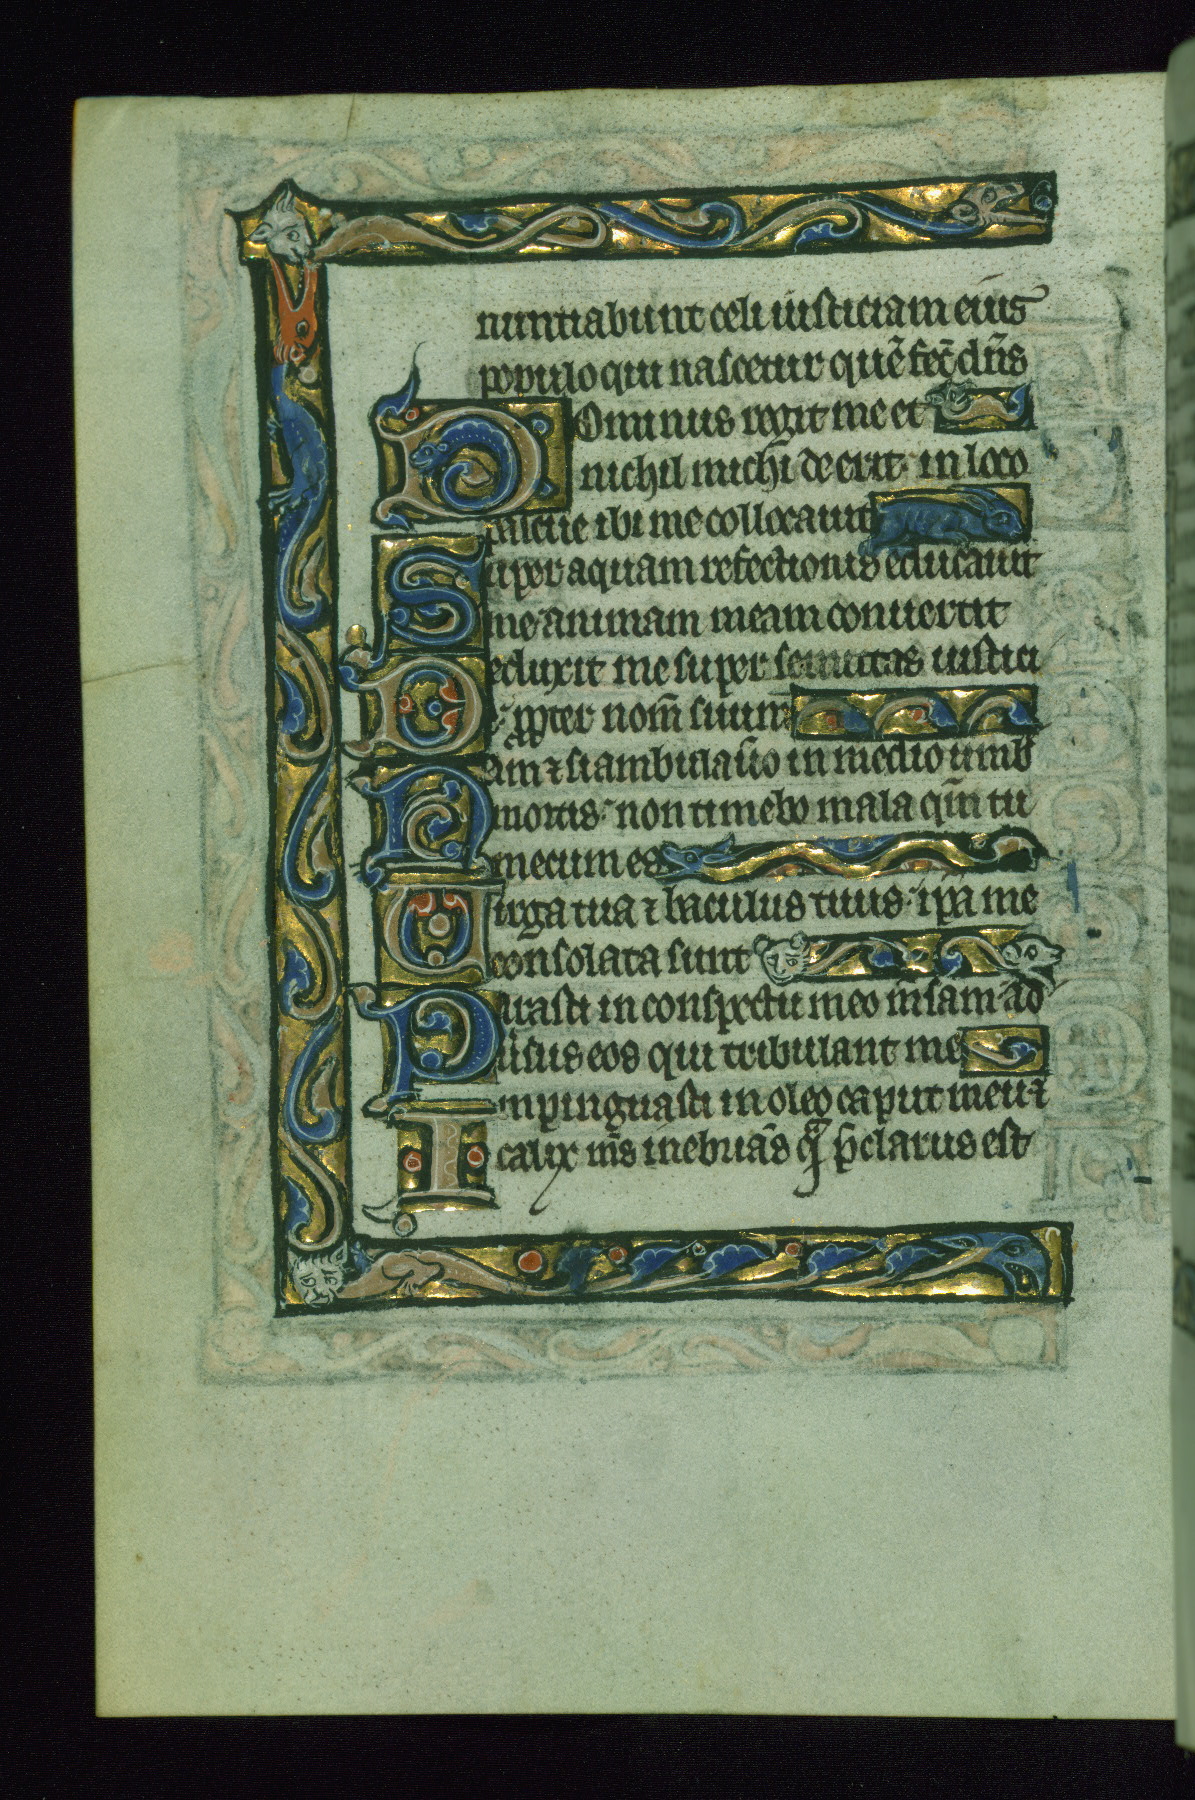 nuntiabunt celi iusticiam eius
populo qui nascetur quē fec̄ dn̄s
Dominus regit me et
nichil michi deerit in loco
pascue ibi me collocauit
Super aquam refectionis educauit
me animam meam conuertit
Deduxit me super semitas iustici
e· ꝓpter nom̄ suum
Nam ⁊ si ambulauero in medio umb̄
mortis· non timebo mala qm̄ tu
mecum es
Uirga tua ⁊ baculus tuus· ip̄a me
consolata sunt
Parasti in conspectu meo m̄sam ad
uˀsus eos qui tribulant me
Inpinguasti in oleo caput meū ⁊
calix ms̄ inebrians qᵃ̄ p̄clarus est